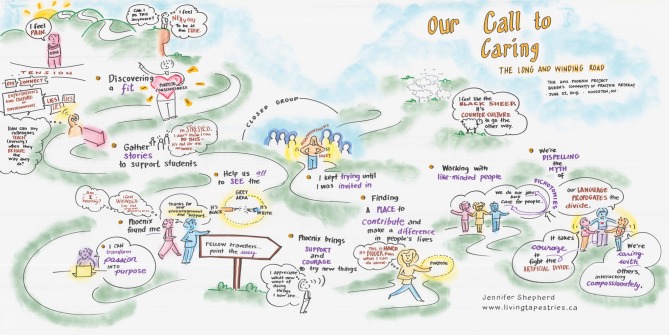 Our Call to
Caring
THE LONG AND WINDING ROAD
THE AMS PHOENIX PROJECT
QUEEN'S COMMUNITY OF PRACTICE RETREAT
JUNE 23, 2015 · KINGSTON, ON
I feel
PAIN.
Can I
do this
anymore?
I feel
NERVOUS
to be at
the EDGE.
TENSION
DISCONNECT
LIES
LIES
LIES
How can my
colleagues
TEACH
when they
BEHAVE
the way
they do?
• Discovering
a fit
PHOENIX
CONSCIOUSNESS
• Gather
stories
to support students
CLOSED GROUP
• I kept trying until
I was invited in
I feel like the
BLACK SHEEP.
It's
COUNTER-CULTURE
to go the
other way.
• Help us all
to SEE the
GREY
AREA
IT'S
BLACK
IT'S
WHITE
• Phoenix
found me
Am I
crazy?
I CAN
transform
passion
INTO
purpose
FELLOW travellers...
point the way
• Phoenix brings
SUPPORT
and
COURAGE
to try new things
I appreciate
what new
ways of
doing
things
• Finding
A PLACE to
contribute and
make a difference
in people's lives
This is HARD
PURPOSE
• Working with
like-minded people
We do our jobs
care for people.
• We're
DISPELLING
the
MYTH
OF
DICHOTOMIES
our LANGUAGE
PROPAGATES the
divide.
It takes
courage
to
fight the
ARTIFICIAL DIVIDE.
We're
caring
with
others,
interacting
compassionately.
Jennifer Shepherd
www.livingtapestries.ca